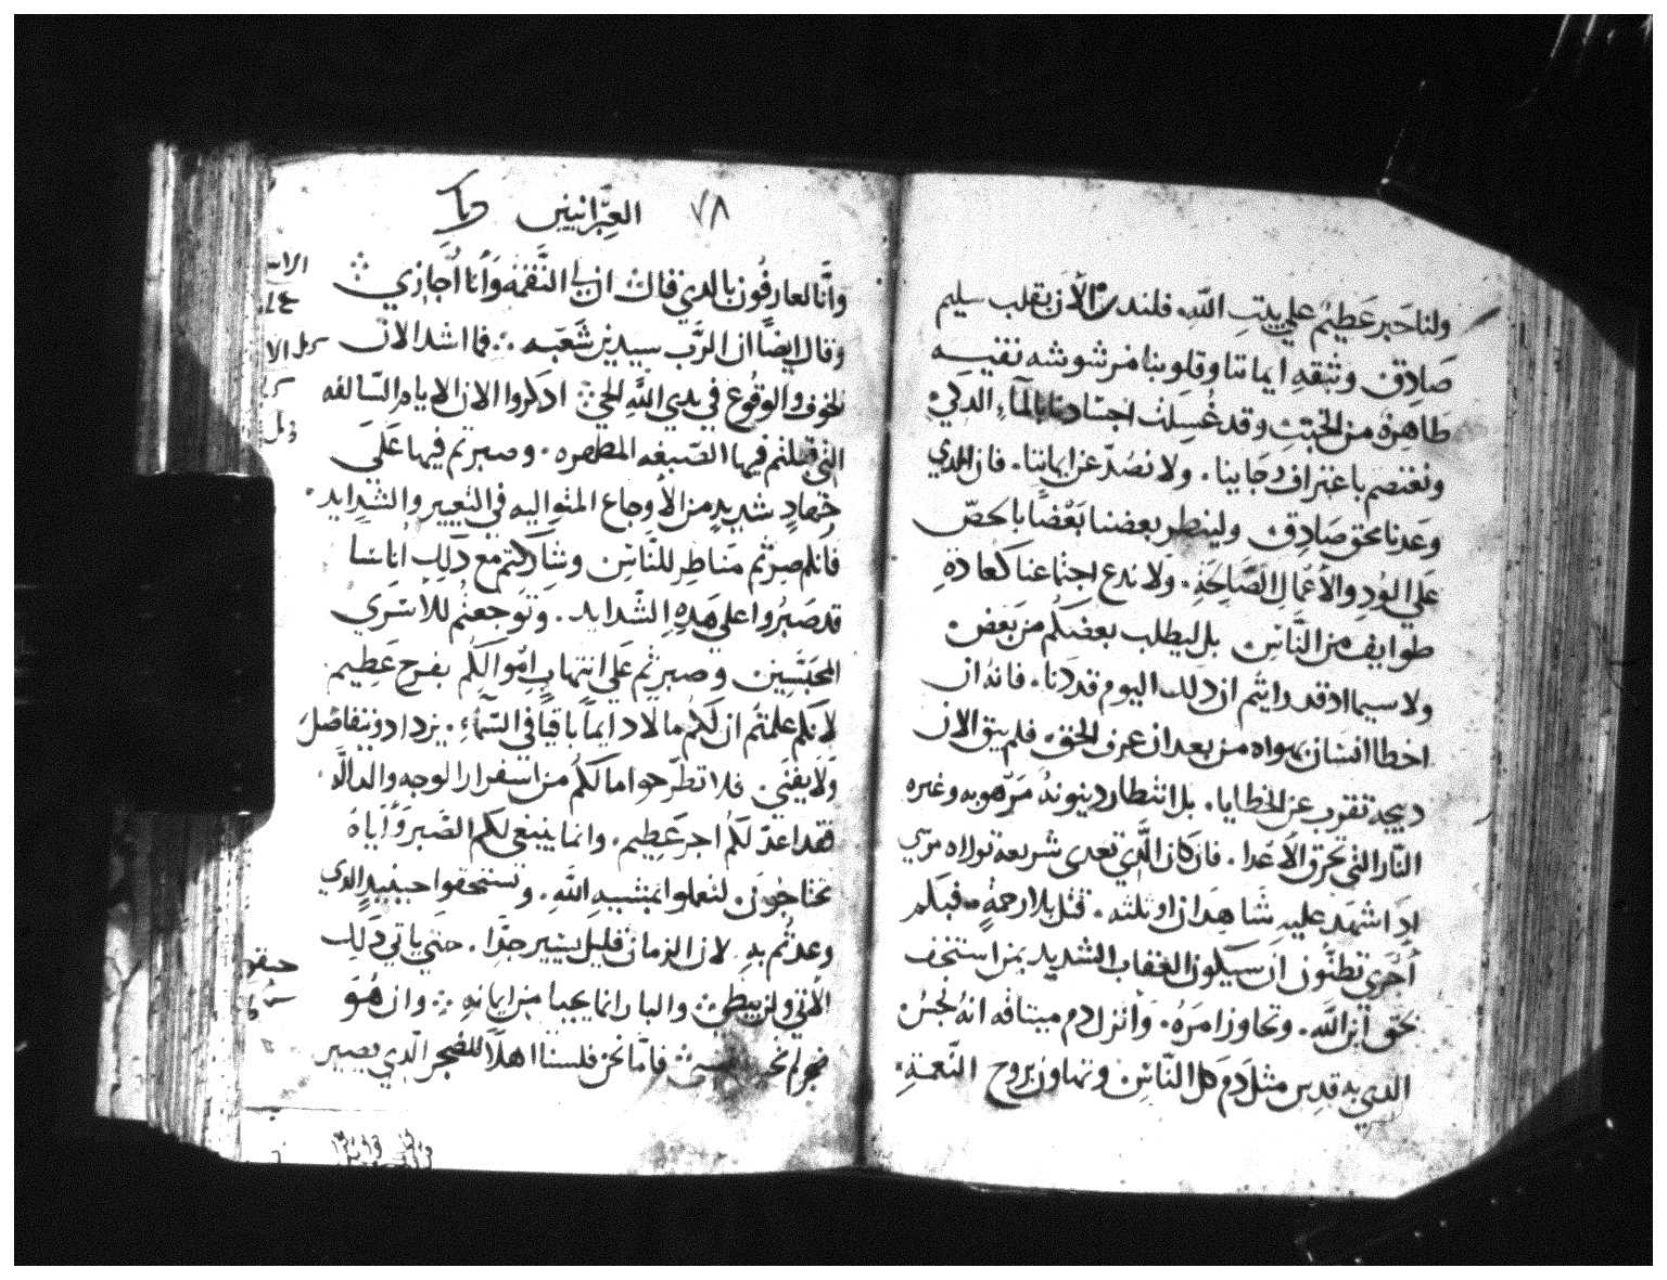 ولنا حبر عظيم علي بيت الله فلندن الأن بقلب سليم
صادق وثقه ايماننا وقلوبنا مرشوشه نقيه
طاهرة من الخبث وقد غسلت اجسادنا بالمآء الدكي
ونعتصم باعتراف رجاينا . ولا نصد عن ايماننا . فان الدي
وعدنا محق صادق ولينطر بعضنا بعضا بالحص
علي الود والأعمال الصالحة . ولا ندع اجتماعنا كعادة
طوايف من الناس بل ليطلب بعضكم من بعض
ولا سيما اد قد رايتم ان دلك اليوم قد دنا . فانه ان
اخطا انسان بهواه من بعد ان عرف الحق فلم يبق الان
دبيحة تقرب عن الخطايا . بل انتطار دينونة مرهوبه وغيره
النار التي تحرق الأعدا . فان كان الدي تعدى شريعة توراه مرسي
ادا شهد عليه شاهدان او ثلثه . قتل بلا رحمة . فبكم
أحري تطنون ان سيكون العقاب الشديد بمن استخف
بحق ابن الله . وتجاوز امره . وأنزل دم ميتاقه انه نجس
الدي به قدس مثل دم كل الناس وتهاون بروح النعمة .
٧٨ العبرانيين
وأنا لعارفون بالدي قال ان لي النقمة وأنا أجازي
وقال ايضاً ان الرب سيدين شعبه فما اشد الان
الخوف والوقوع في يدي الله الحي ادكروا الان الايام السالفه
التي قبلتم فيها الصبغه المطهره . وصبرتم فيها علي
جهاد شديد من الأوجاع المتواليه في التعيير والشدايد .
فانكم صرتم مناطر للناس وشاركتم مع دلك اناسا
قد صبروا علي هده الشدايد . وتوجعتم للأسري
المحبسين وصبرتم علي انتهاب اموالكم بفرح عطيم
لانكم علمتم ان لكم مالا دايماً باقياً في السمآء . يزداد ويتفاضل
ولا يفني . فلا تطرحوا ما لكم من اسفرار الوجه والداله .
فقد اعد لكم اجر عظيم . وانما ينبغي لكم الصبر وأياه
تحتاجون لتعملوا بمشيه الله . وتستحقوا حينيد الدي
وعدتم به لان الزمان قليل يسير جدا . حتي ياتي دلك
الأتي ولن يبطي والبار انما يحيا من ايمانه وان هو
ضجر لم فاما نحن فلسنا اهلا للضجر الدي يصير